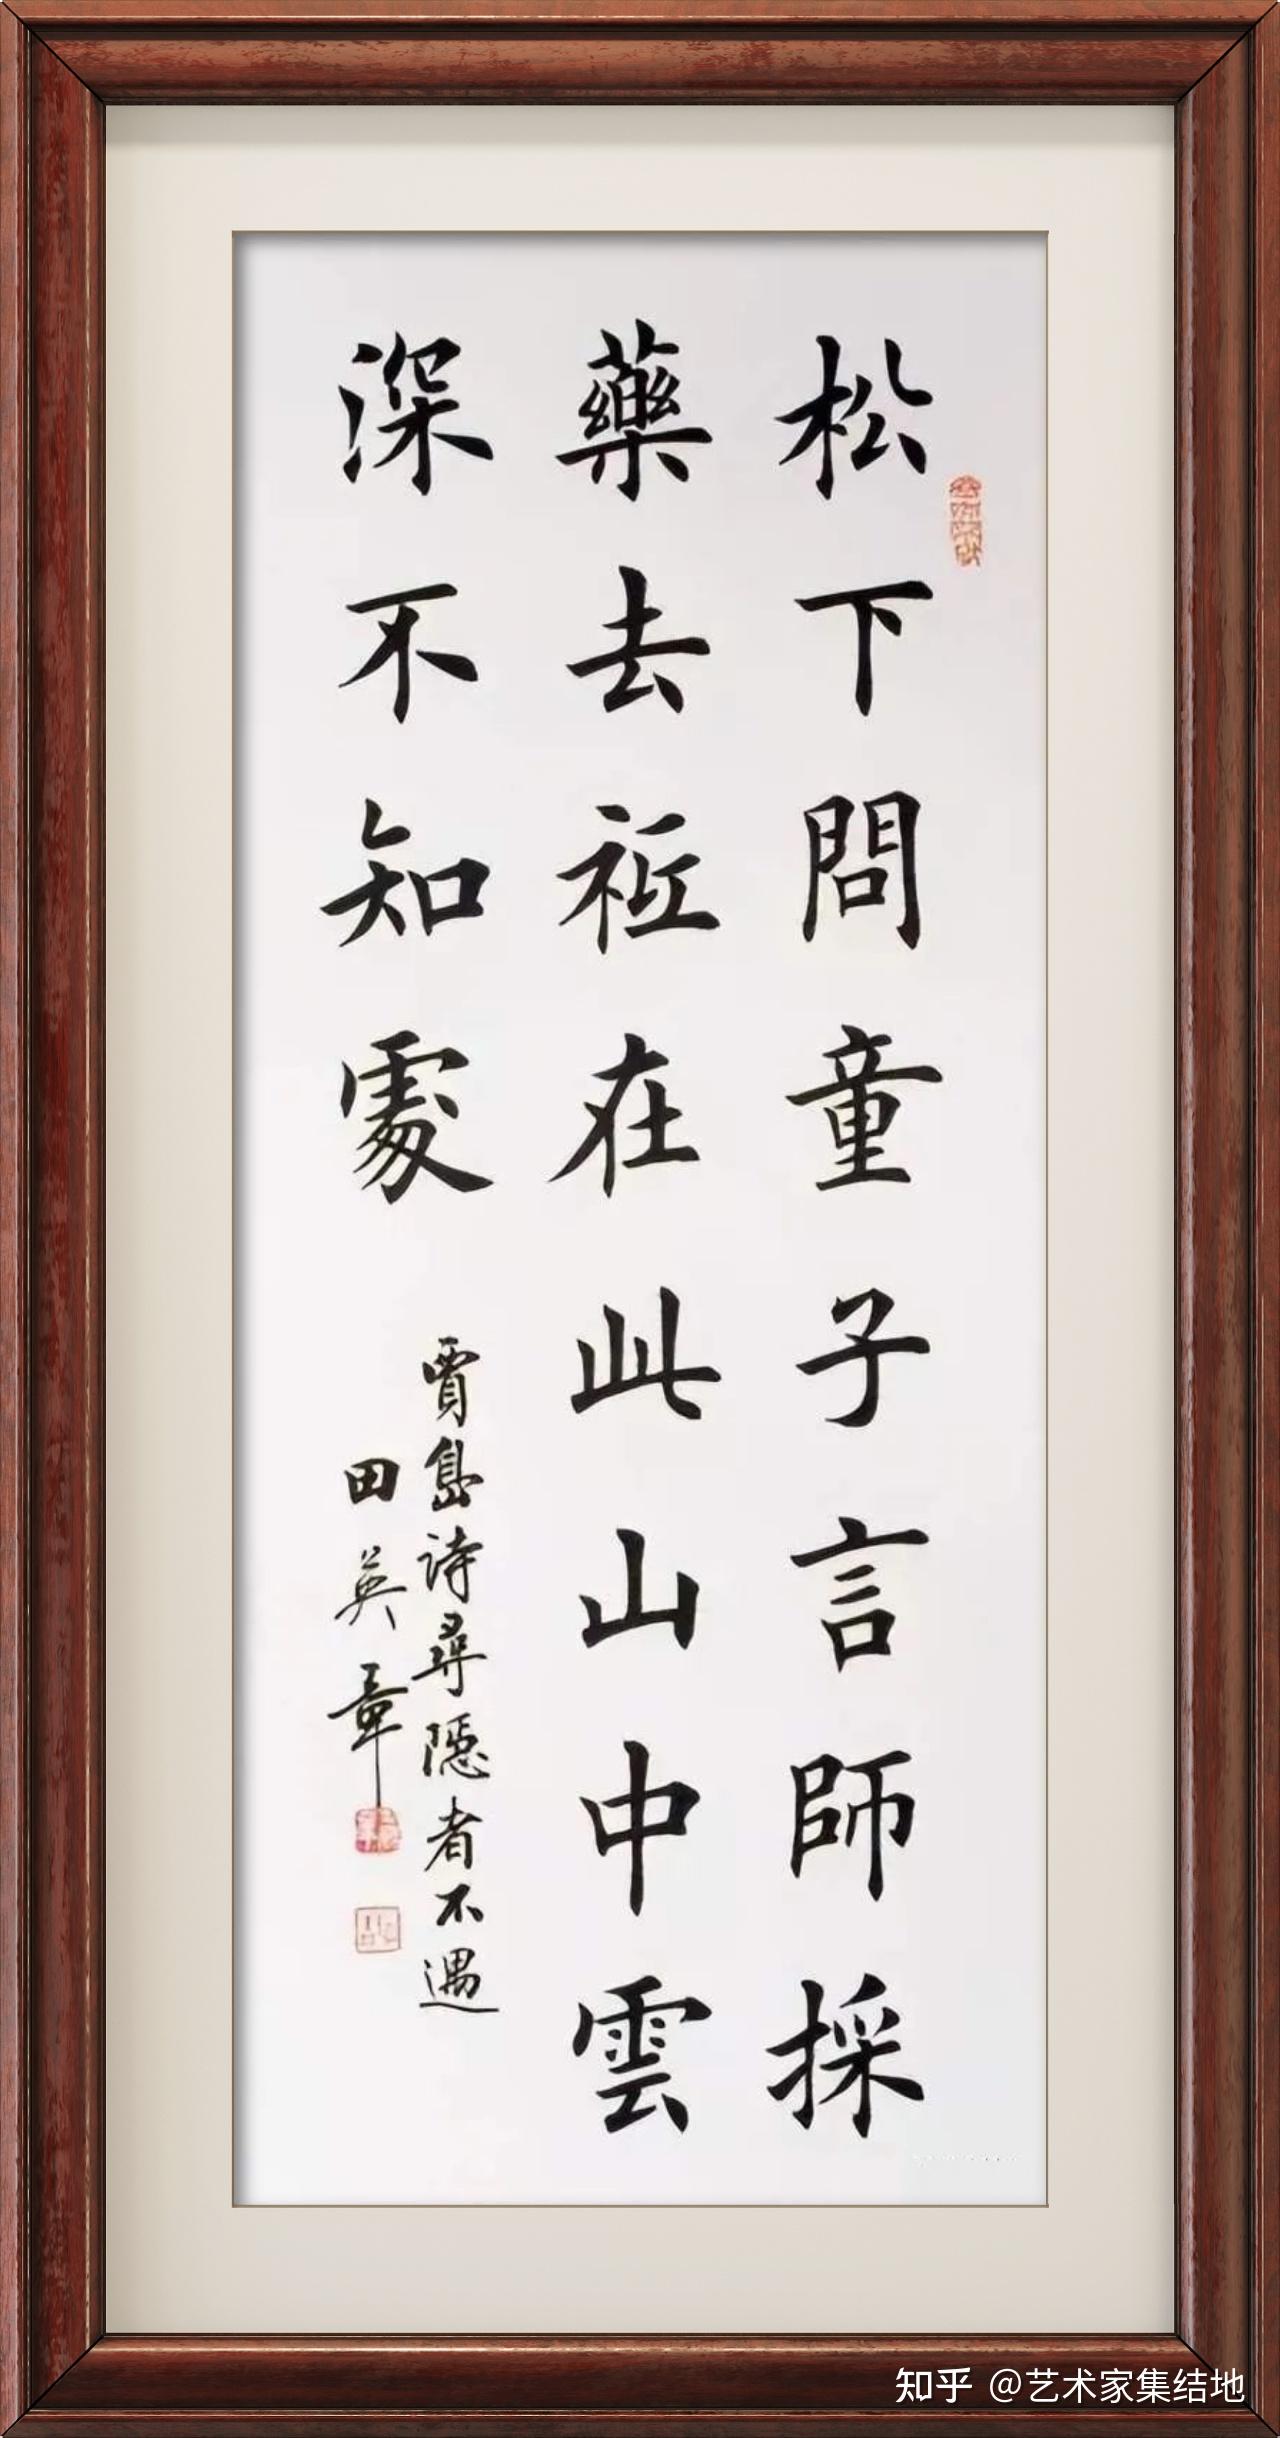 松下問童子言師採
藥去祗在此山中雲
深不知處
賈島詩尋隱者不遇
田英章
知乎 @艺术家集结地